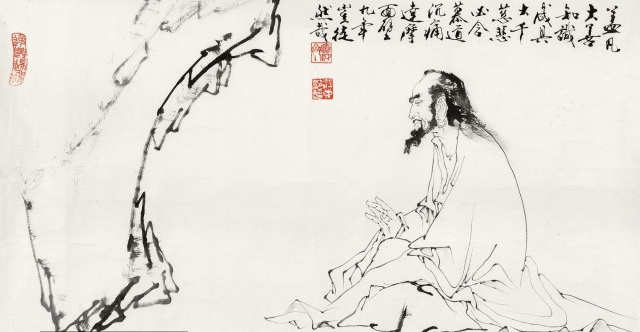 盖凡
大善
知識
咸具
大千
慈悲
必含
慕道
沉痛
達摩
面壁
九年
豈徒
然哉